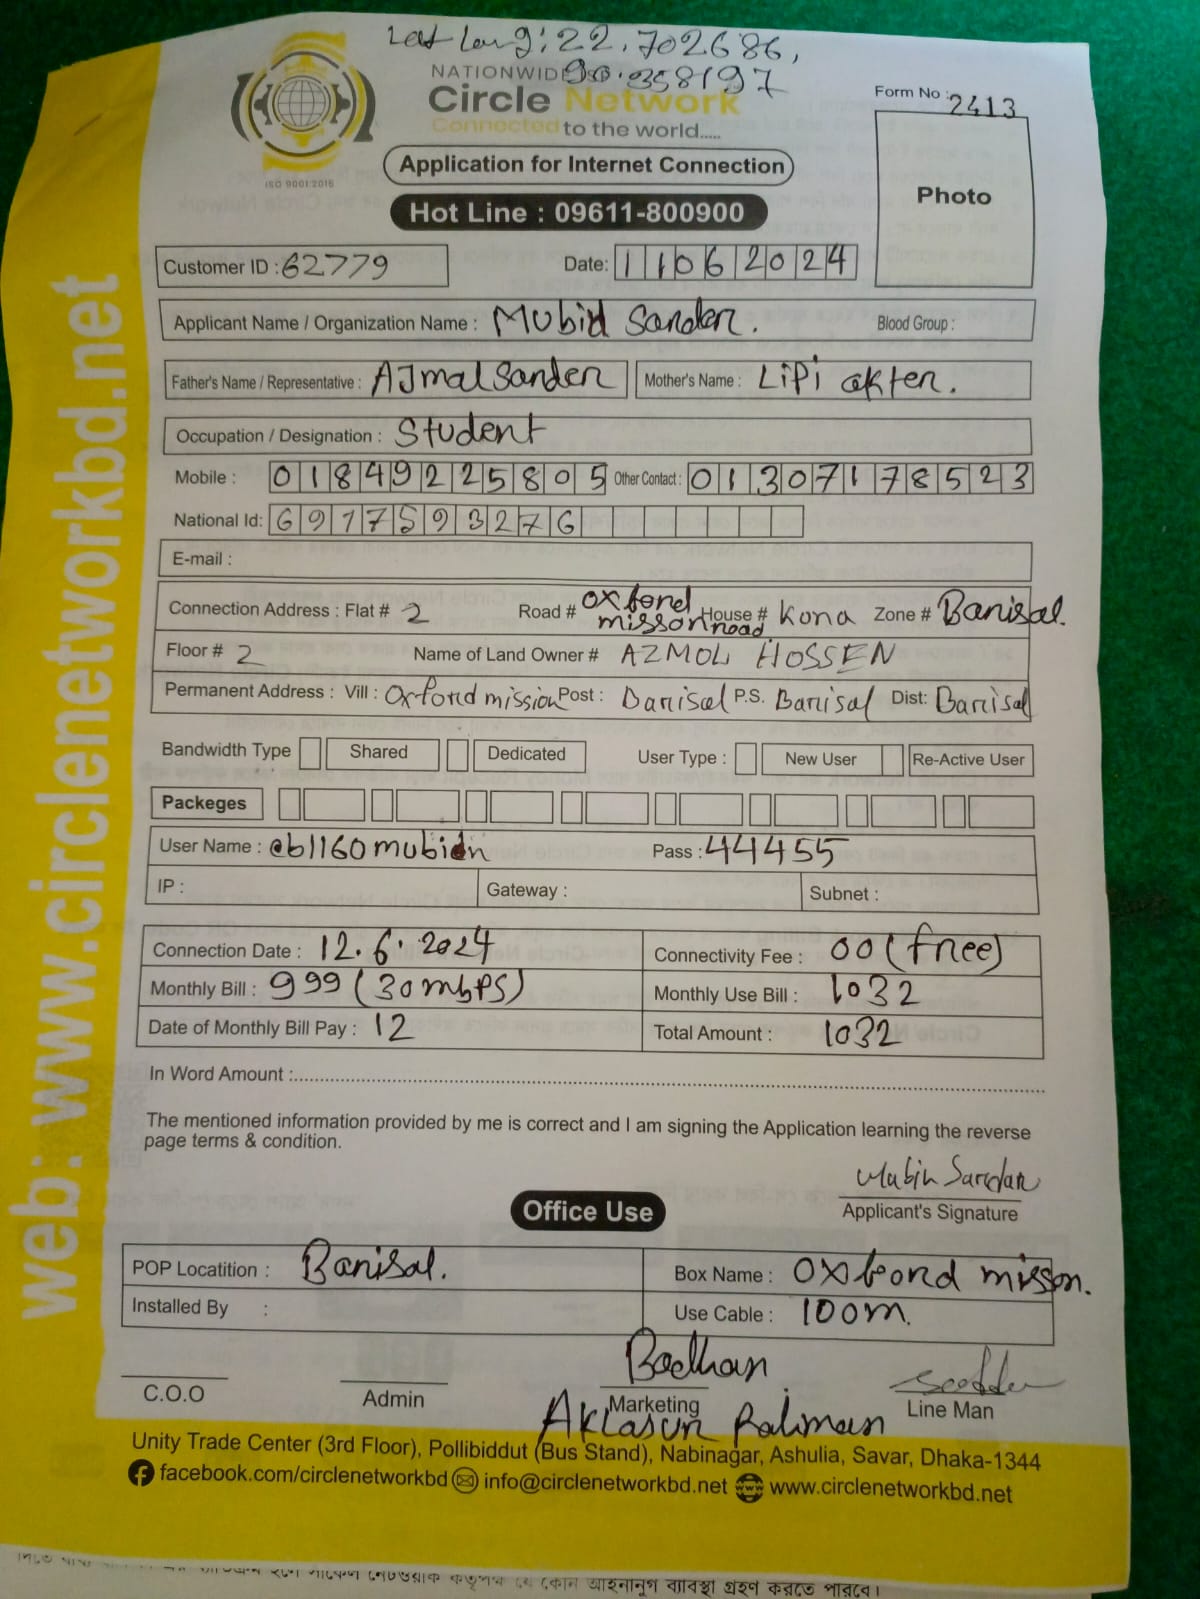 Lat Long: 22.702686,
90.358197
NATIONWIDE ISP
Circle Network
Connected to the world.....
ISO 9001:2015
Form No : 2413
Photo
Application for Internet Connection
Hot Line : 09611-800900
Customer ID : 62779 Date: 11062024
Applicant Name / Organization Name : Mubid Sarder. Blood Group :
Father's Name / Representative : AJmal Sarder Mother's Name : Lipi akter.
Occupation / Designation : Student
Mobile : 01849225805 Other Contact : 01307178523
National Id: 6917593276
E-mail :
Connection Address : Flat # 2 Road # oxford misson road House # Kona Zone # Barisal.
Floor # 2 Name of Land Owner # AZMOL HOSSEN
Permanent Address : Vill : Oxford mission Post : Barisal P.S. Barisal Dist: Barisal
Bandwidth Type Shared Dedicated User Type : New User Re-Active User
Packeges
User Name : @b1160mubidn Pass : 44455
IP : Gateway : Subnet :
Connection Date : 12.6.2024 Connectivity Fee : 00 (free)
Monthly Bill : 999 (30mbPS) Monthly Use Bill : 1032
Date of Monthly Bill Pay : 12 Total Amount : 1032
In Word Amount :
The mentioned information provided by me is correct and I am signing the Application learning the reverse
page terms & condition.
Mubin Sardar
Applicant's Signature
Office Use
POP Locatition : Barisal. Box Name : Oxford misson.
Installed By : Use Cable : 100m.
Badhan
C.O.O Admin Marketing Line Man
Aklasur Rahman
Unity Trade Center (3rd Floor), Pollibiddut (Bus Stand), Nabinagar, Ashulia, Savar, Dhaka-1344
facebook.com/circlenetworkbd info@circlenetworkbd.net www.circlenetworkbd.net
web: www.circlenetworkbd.net
কর্তৃপক্ষ যে কোন আইনানুগ ব্যবস্থা গ্রহণ করতে পারবে।